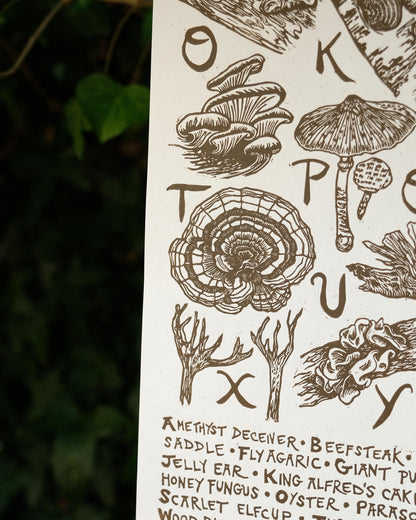 O K
T P
U
X Y
AMETHYST DECEIVER • BEEFSTEAK •
SADDLE • FLY AGARIC • GIANT PU
JELLY EAR • KING ALFRED'S CAK
HONEY FUNGUS • OYSTER • PARASO
SCARLET ELFCUP •
WOOD